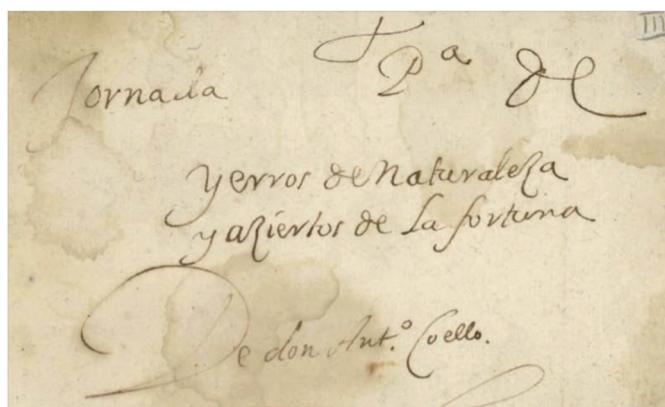 III
Jornada Pª de
yerros de Naturaleza
y aziertos de la fortuna
De don Ant.º Coello.